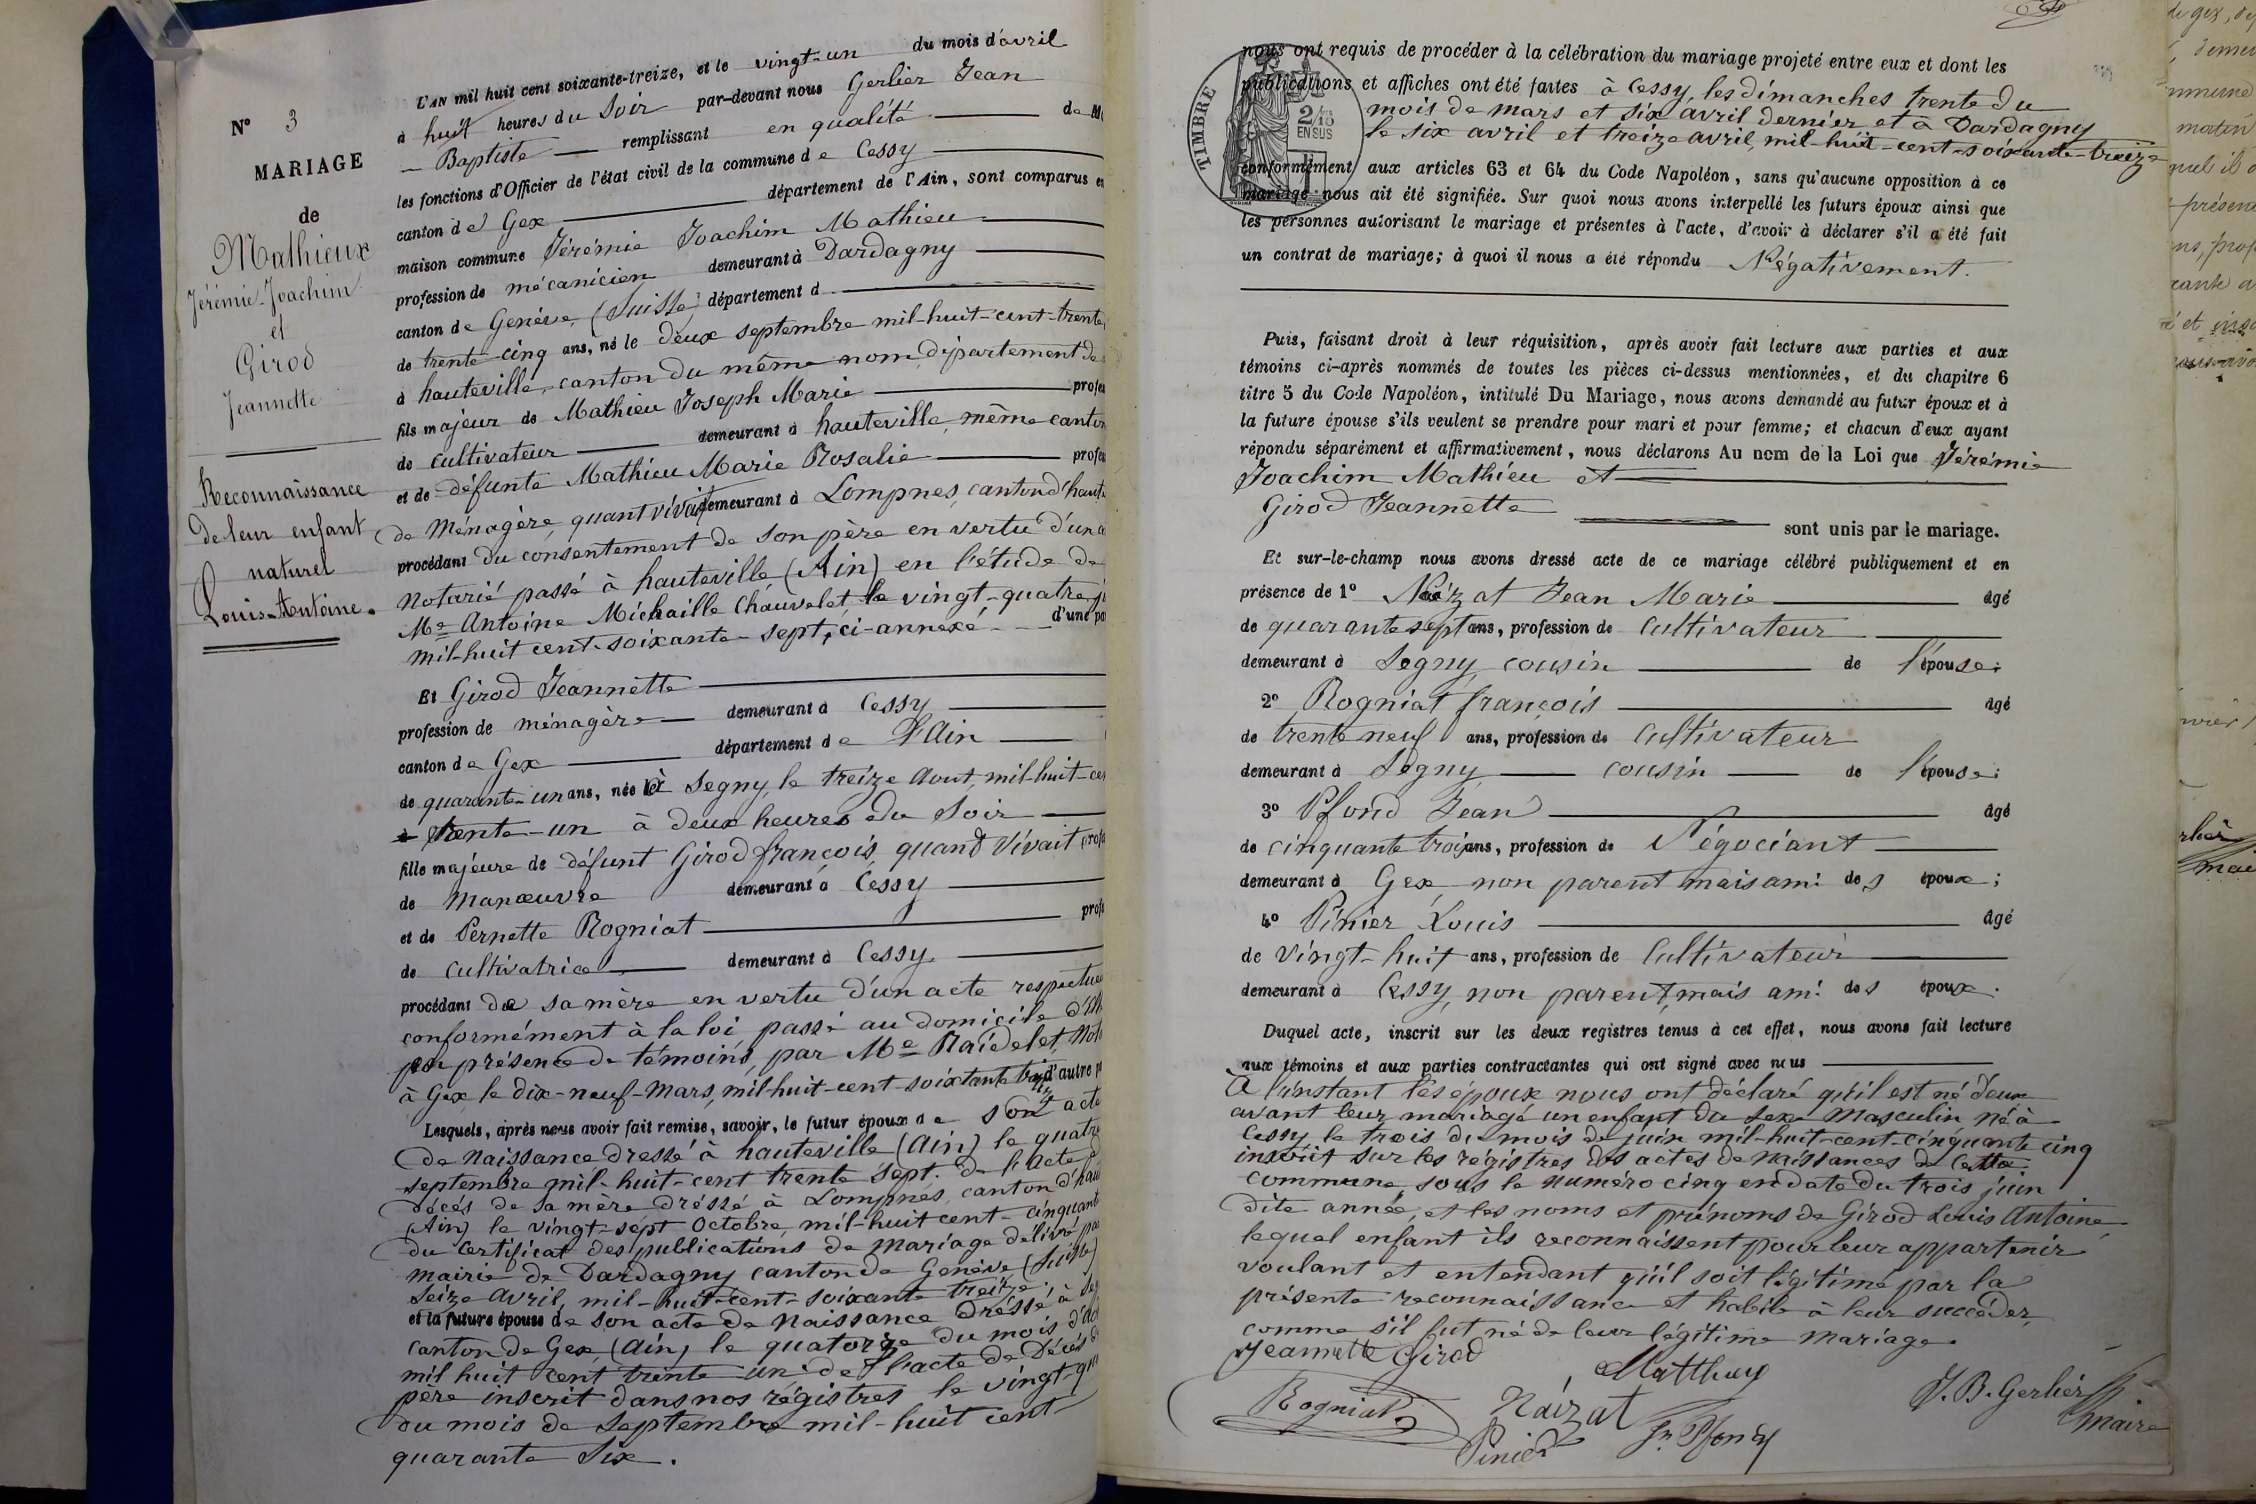 N° 3
MARIAGE
de
Mathieux
Jérémie-Joachim
et
Girod
Jeannette
Reconnaissance
de leur enfant
naturel
Louis-Antoine.
L'AN mil huit cent soixante-treize, et le vingt-un du mois d'avril
à huit heures du Soir par-devant nous Gerlier Jean
Baptiste remplissant en qualité de
les fonctions d'Officier de l'état civil de la commune de Cessy
canton de Gex département de l'Ain, sont comparus
maison commune Jérémie Joachim Mathieu
profession de mécanicien demeurant à Dardagny
canton de Genève, (Suisse) département d
de trente-cinq ans, né le deux septembre mil-huit-cent-trente
à hauteville, canton du même nom, département de
fils majeur de Mathieu Joseph Marie
de cultivateur demeurant à hauteville, même canton
et de défunte Mathieu Marie Rosalie
de Ménagère, quant vivait demeurant à Lompnes, canton d'
procédant du consentement de son père en vertu d'un
Notarié passé à hauteville (Ain) en l'étude de
Me Antoine Michaille Chauvelet, le vingt-quatre
mil-huit cent-soixante-sept, ci-annexé d'une
Et Girod Jeannette
profession de ménagère demeurant à Cessy
canton de Gex département de L'Ain
de quarante-un ans, née à Segny, le treize Aout, mil-huit-
trente-un à deux heures du Soir
fille majeure de défunt Girod françois, quand Vivait
de Manœuvre demeurant à Cessy
et de Pernette Rogniat
de Cultivatrice demeurant à Cessy
procédant de sa mère en vertu d'un acte
conformément à la loi passé au domicile
en présence de témoins, par Me Raidelet,
à Gex le dix-neuf-Mars, mil-huit-cent-soixante d'autre
Lesquels, après nous avoir fait remise, savoir, le futur époux de son acte
de Naissance dressé à hauteville (Ain) le quatre
septembre mil-huit-cent trente sept. de l'acte
décés de sa mère dréssé à Lompnés, canton d'
(Ain) le vingt-sept Octobre, mil-huit cent-cinquante
du Certificat des publications de Mariage délivré
mairie de Dardagny canton de Genève (Suisse)
Seize avril, mil-huit-cent-soixante treize
et la future épouse de son acte de Naissance Dréssé à
canton de Gex (Ain) le quatorze du mois
mil huit cent trente-un de l'acte de Décés
père inscrit dans nos régistres le vingt-
du mois de Septembre mil-huit cent-
quarante Six.
nous ont requis de procéder à la célébration du mariage projeté entre eux et dont les
publications et affiches ont été faites à Cessy, les dimanches trente du
mois de mars et six avril dernier et à Dardagny
le six avril et treize avril, mil-huit-cent-soixante-treize
conformément aux articles 63 et 64 du Code Napoléon, sans qu'aucune opposition à ce
mariage nous ait été signifiée. Sur quoi nous avons interpellé les futurs époux ainsi que
les personnes autorisant le mariage et présentes à l'acte, d'avoir à déclarer s'il a été fait
un contrat de mariage; à quoi il nous a été répondu Négativement.
TIMBRE
2/10
EN SUS
Puis, faisant droit à leur réquisition, après avoir fait lecture aux parties et aux
témoins ci-après nommés de toutes les pièces ci-dessus mentionnées, et du chapitre 6
titre 5 du Code Napoléon, intitulé Du Mariage, nous avons demandé au futur époux et à
la future épouse s'ils veulent se prendre pour mari et pour femme; et chacun d'eux ayant
répondu séparément et affirmativement, nous déclarons Au nom de la Loi que Jérémie
Joachim Mathieu et
Girod Jeannette
sont unis par le mariage.
Et sur-le-champ nous avons dressé acte de ce mariage célébré publiquement et en
présence de 1° Naizat Jean Marie âgé
de quarante sept ans, profession de Cultivateur
demeurant à Segny, cousin de l'épouse;
2° Rogniat françois âgé
de trente neuf ans, profession de Cultivateur
demeurant à Segny cousin de l'épouse;
3° Pfond Jean âgé
de cinquante trois ans, profession de Négociant
demeurant à Gex non parent mais ami des époux;
4° Pinier Louis âgé
de Vingt-huit ans, profession de Cultivateur
demeurant à Cessy, non parent, mais ami des époux.
Duquel acte, inscrit sur les deux registres tenus à cet effet, nous avons fait lecture
aux témoins et aux parties contractantes qui ont signé avec nous
A l'instant les époux nous ont déclaré qu'il est né d'eux
avant leur mariage un enfant du sexe Masculin né à
Cessy, le trois du mois de juin mil-huit-cent-cinquante cinq
inscrit sur les régistres des actes de Naissances de Cette
commune, sous le numéro cinq en date du trois juin
dite année, et les noms et prénoms de Girod Louis Antoine,
lequel enfant ils reconnaissent pour leur appartenir
voulant et entendant qu'il soit légitimé par la
présente reconnaissance et habile à leur succéder,
comme s'il fut né de leur légitime Mariage.
Jeannette Girod
Matthuy
Rogniat
Naizat
J. B. Gerlier
maire
Pinier
Jn Pfond